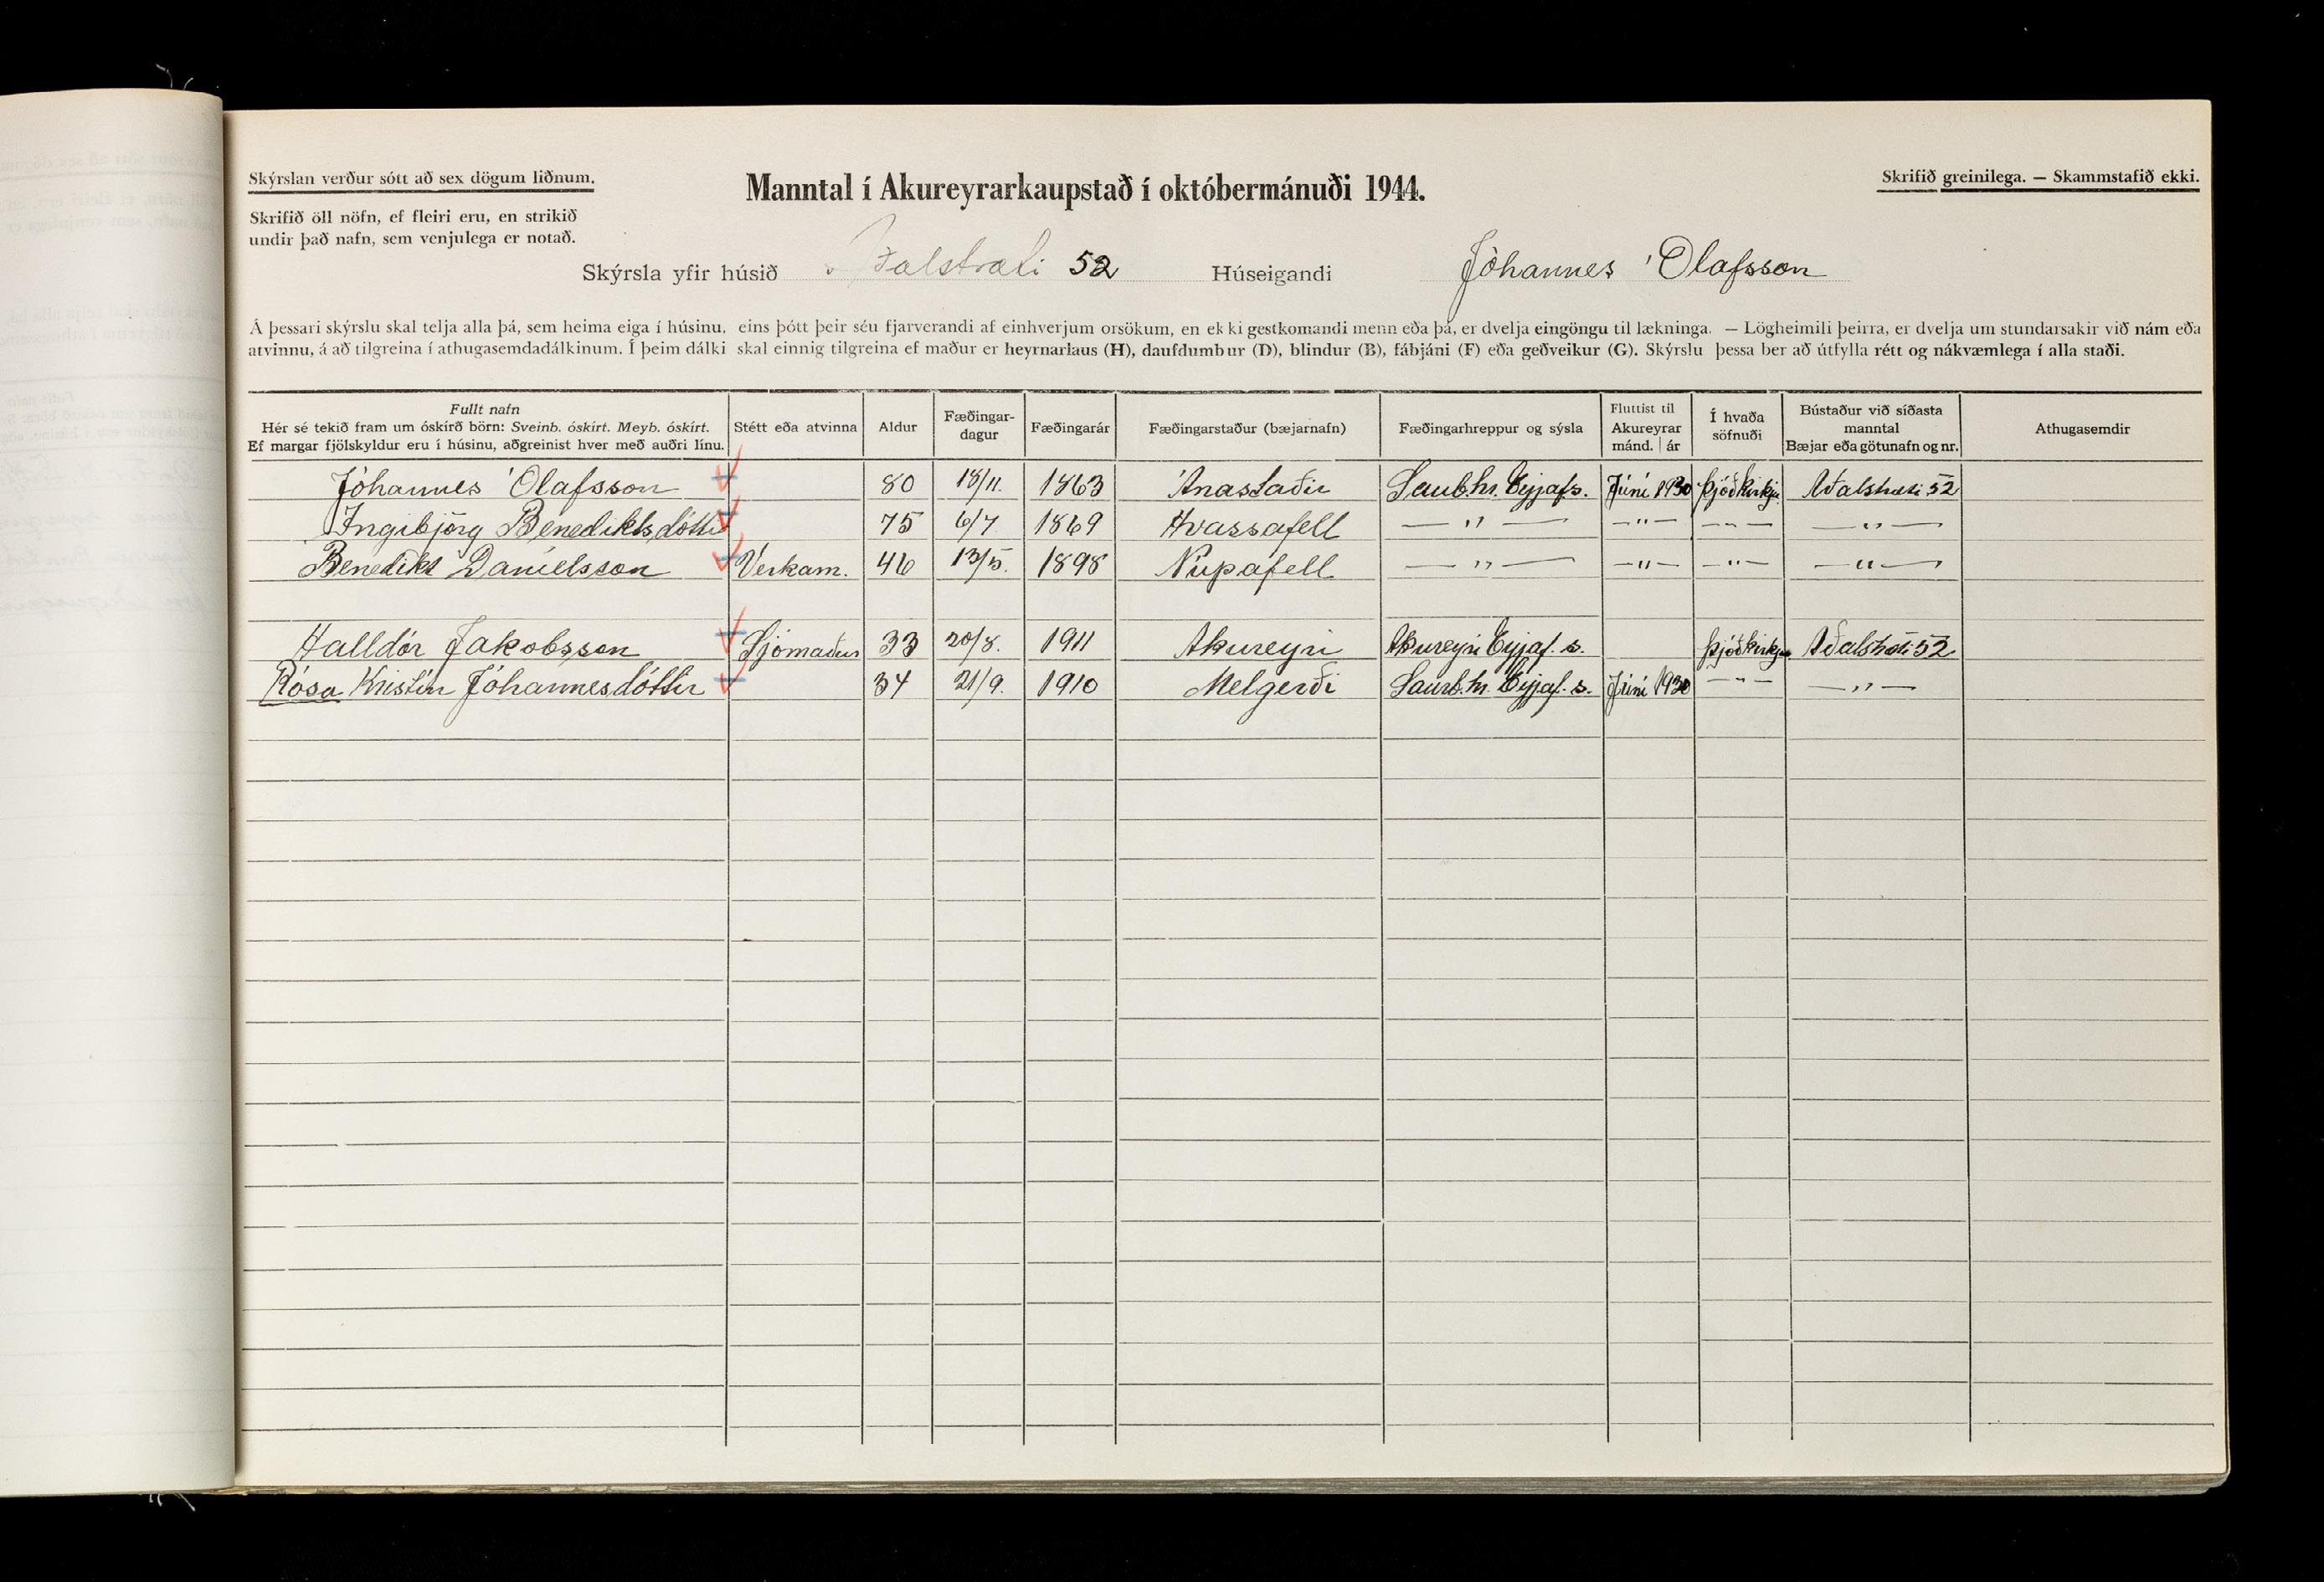 Skýrslan verður sótt að sex dögum liðnum.
Manntal í Akureyrarkaupstað í októbermánuði 1944.
Skrifið greinilega. — Skammstafið ekki.
Skrifið öll nöfn, ef fleiri eru, en strikið
undir það nafn, sem venjulega er notað.
Skýrsla yfir húsið Aðalstræti 52 Húseigandi Jóhannes Ólafsson
Á þessari skýrslu skal telja alla þá, sem heima eiga í húsinu, eins þótt þeir séu fjarverandi af einhverjum orsökum, en ekki gestkomandi menn eða þá, er dvelja eingöngu til lækninga. — Lögheimili þeirra, er dvelja um stundarsakir við nám eða
atvinnu, á að tilgreina í athugasemdadálkinum. Í þeim dálki skal einnig tilgreina ef maður er heyrnarlaus (H), daufdumbur (D), blindur (B), fábjáni (F) eða geðveikur (G). Skýrslu þessa ber að útfylla rétt og nákvæmlega í alla staði.
Fullt nafn
Hér sé tekið fram um óskírð börn: Sveinb. óskírt. Meyb. óskírt.
Ef margar fjölskyldur eru í húsinu, aðgreinist hver með auðri línu.
Stétt eða atvinna
Aldur
Fæðingar-
dagur
Fæðingarár
Fæðingarstaður (bæjarnafn)
Fæðingarhreppur og sýsla
Fluttist til
Akureyrar
mánd. | ár
Í hvaða
söfnuði
Bústaður við síðasta
manntal
Bæjar eða götunafn og nr.
Athugasemdir
Jóhannes Ólafsson 80 18/11. 1863 Ánastaðir Saurb.hr. Eyjafs. Júní 1930 Þjóðkirkju Aðalstræti 52
Ingibjörg Benediktsdóttir 75 6/7 1869 Hvassafell — " — — " — — " — — " —
Benedikt Daníelsson Verkam. 46 13/5. 1898 Núpafell — " — — " — — " — — " —
Halldór Jakobsson Sjómaður 33 20/8. 1911 Akureyri Akureyri Eyjaf. s. Þjóðkirkju Aðalstræti 52
Rósa Kristín Jóhannesdóttir 34 21/9. 1910 Melgerði Saurb.hr. Eyjaf. s. Júní 1930 — " — — " —